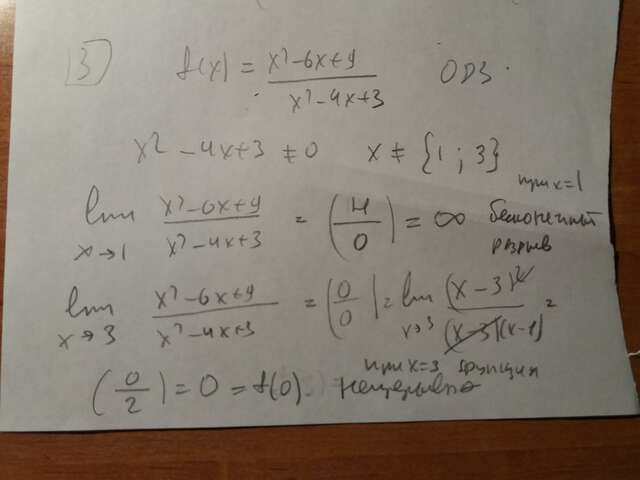 3 f(x) = (x²-6x+9)/(x²-4x+3) ОДЗ.
x² - 4x+3 ≠ 0 x ≠ {1 ; 3}
при x=1
lim x→1 (x²-6x+9)/(x²-4x+3) = (4/0) = ∞ бесконечный
разрыв
lim x→3 (x²-6x+9)/(x²-4x+3) = (0/0) = lim x→3 (x-3)²/((x-3)(x-1)) =
при x=3 функция
(0/2) = 0 = f(0). непрерывна